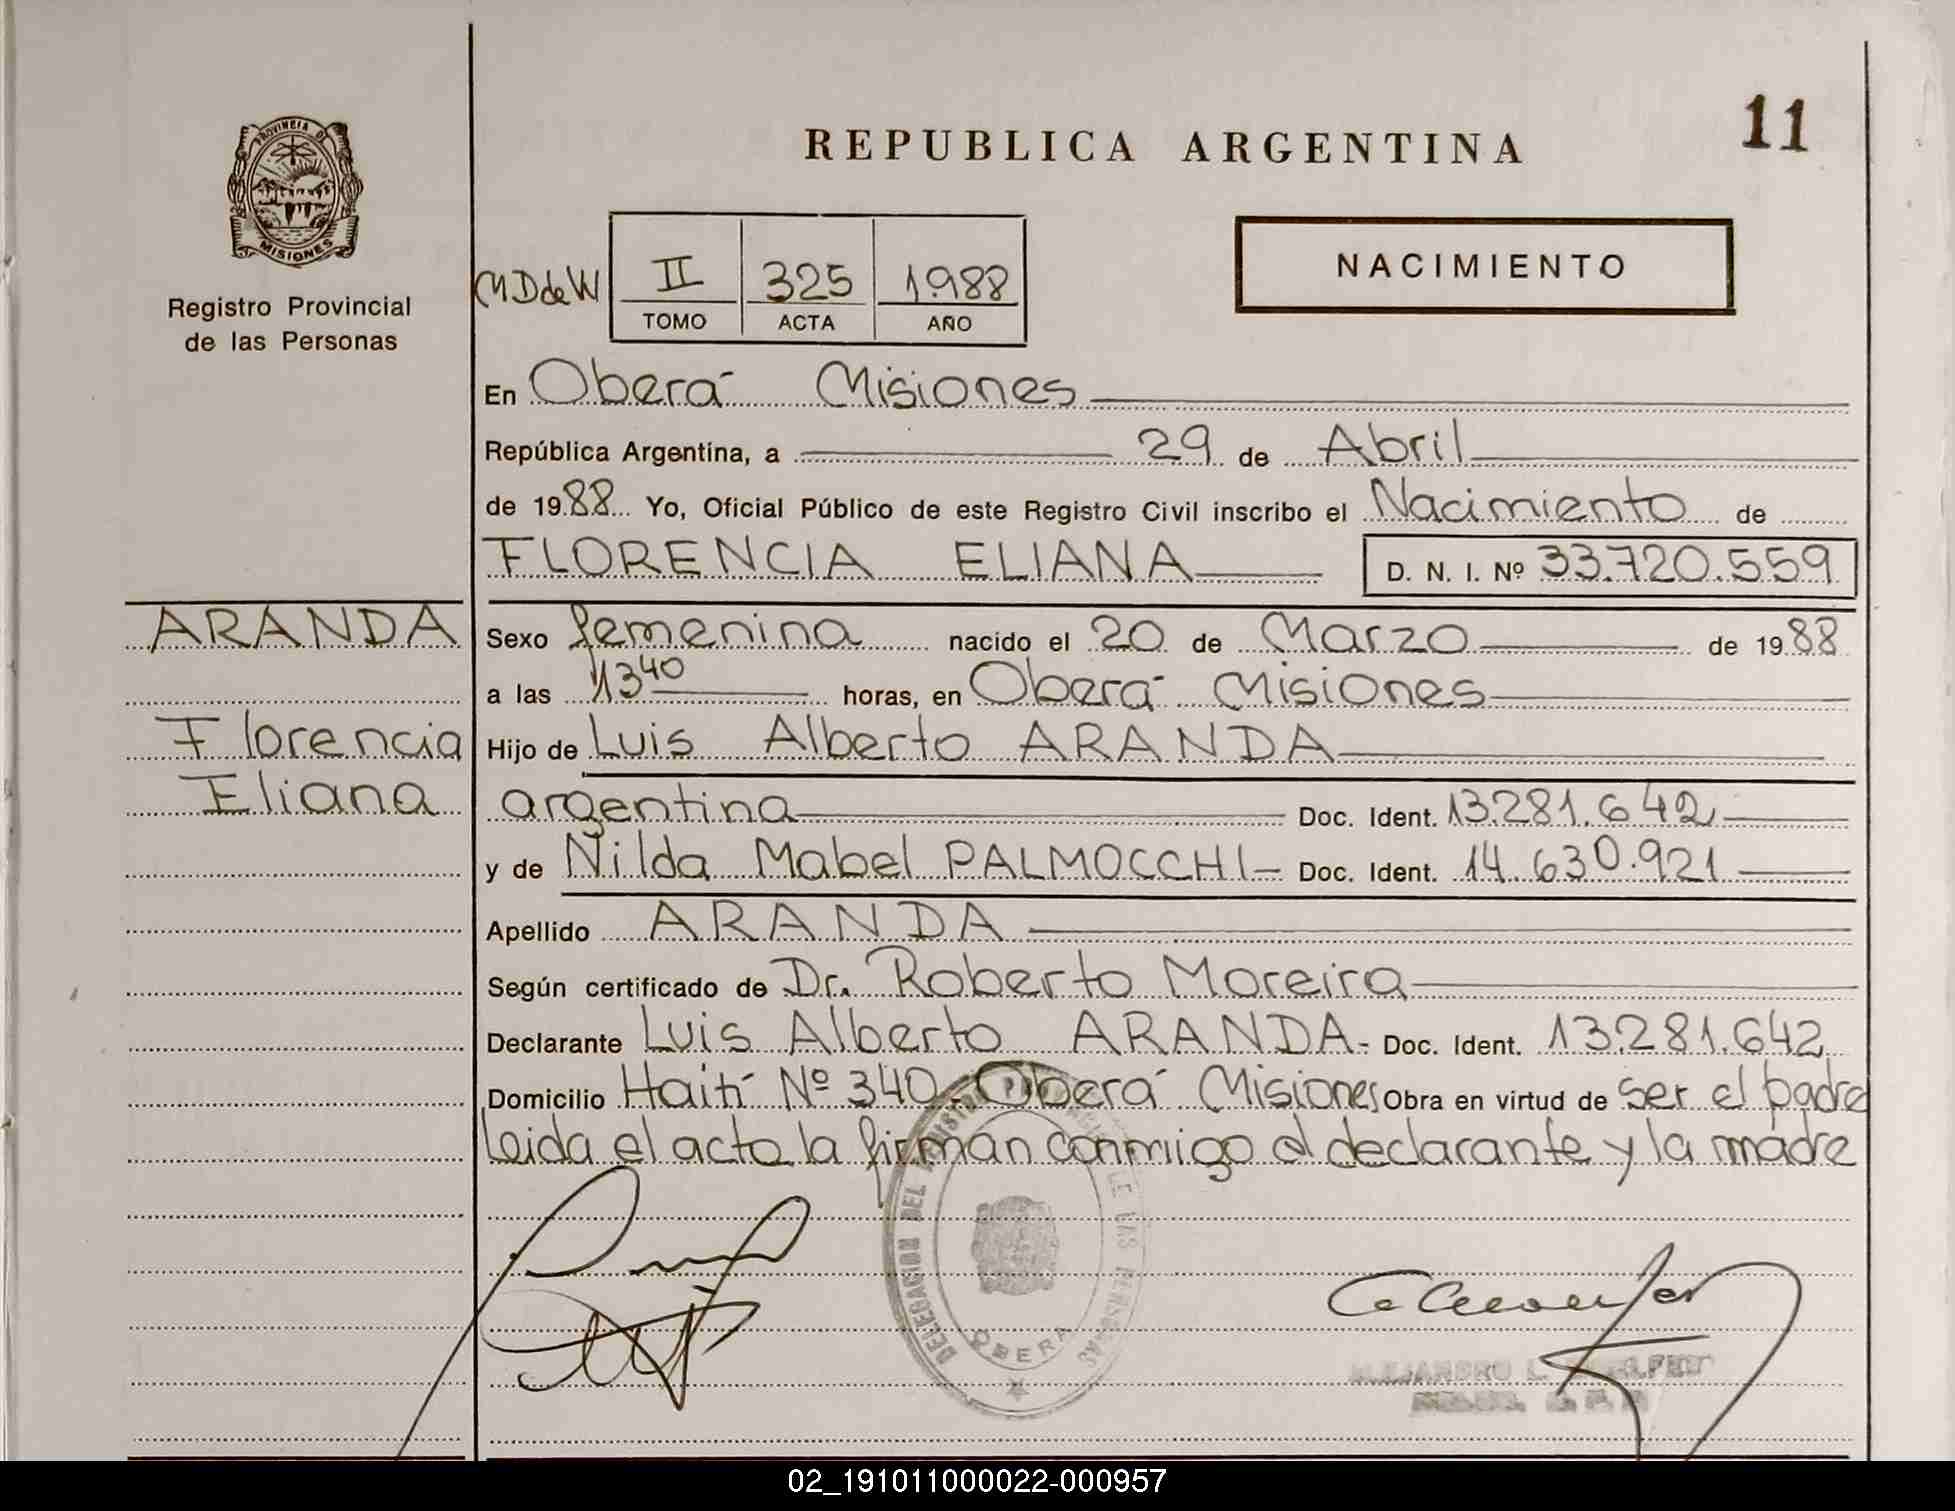 PROVINCIA DE
MISIONES
Registro Provincial
de las Personas
REPUBLICA ARGENTINA
11
MDdeW
II 325 1.988
TOMO ACTA AÑO
NACIMIENTO
En Oberá Misiones
República Argentina, a 29 de Abril
de 1988 Yo, Oficial Público de este Registro Civil inscribo el Nacimiento de
FLORENCIA ELIANA D. N. I. Nº 33.720.559
ARANDA
Florencia
Eliana
Sexo femenina nacido el 20 de Marzo de 1988
a las 13 40 horas, en Oberá Misiones
Hijo de Luis Alberto ARANDA
argentina Doc. Ident. 13.281.642
y de Nilda Mabel PALMOCCHI Doc. Ident. 14.630.921
Apellido ARANDA
Según certificado de Dr. Roberto Moreira
Declarante Luis Alberto ARANDA- Doc. Ident. 13.281.642
Domicilio Haití Nº 340- Oberá Misiones Obra en virtud de ser el padre
Leida el acta la firman conmigo el declarante y la madre
DELEGACION DEL REGISTRO PROVINCIAL DE LAS PERSONAS
OBERA
ALEJANDRO L.
02_191011000022-000957